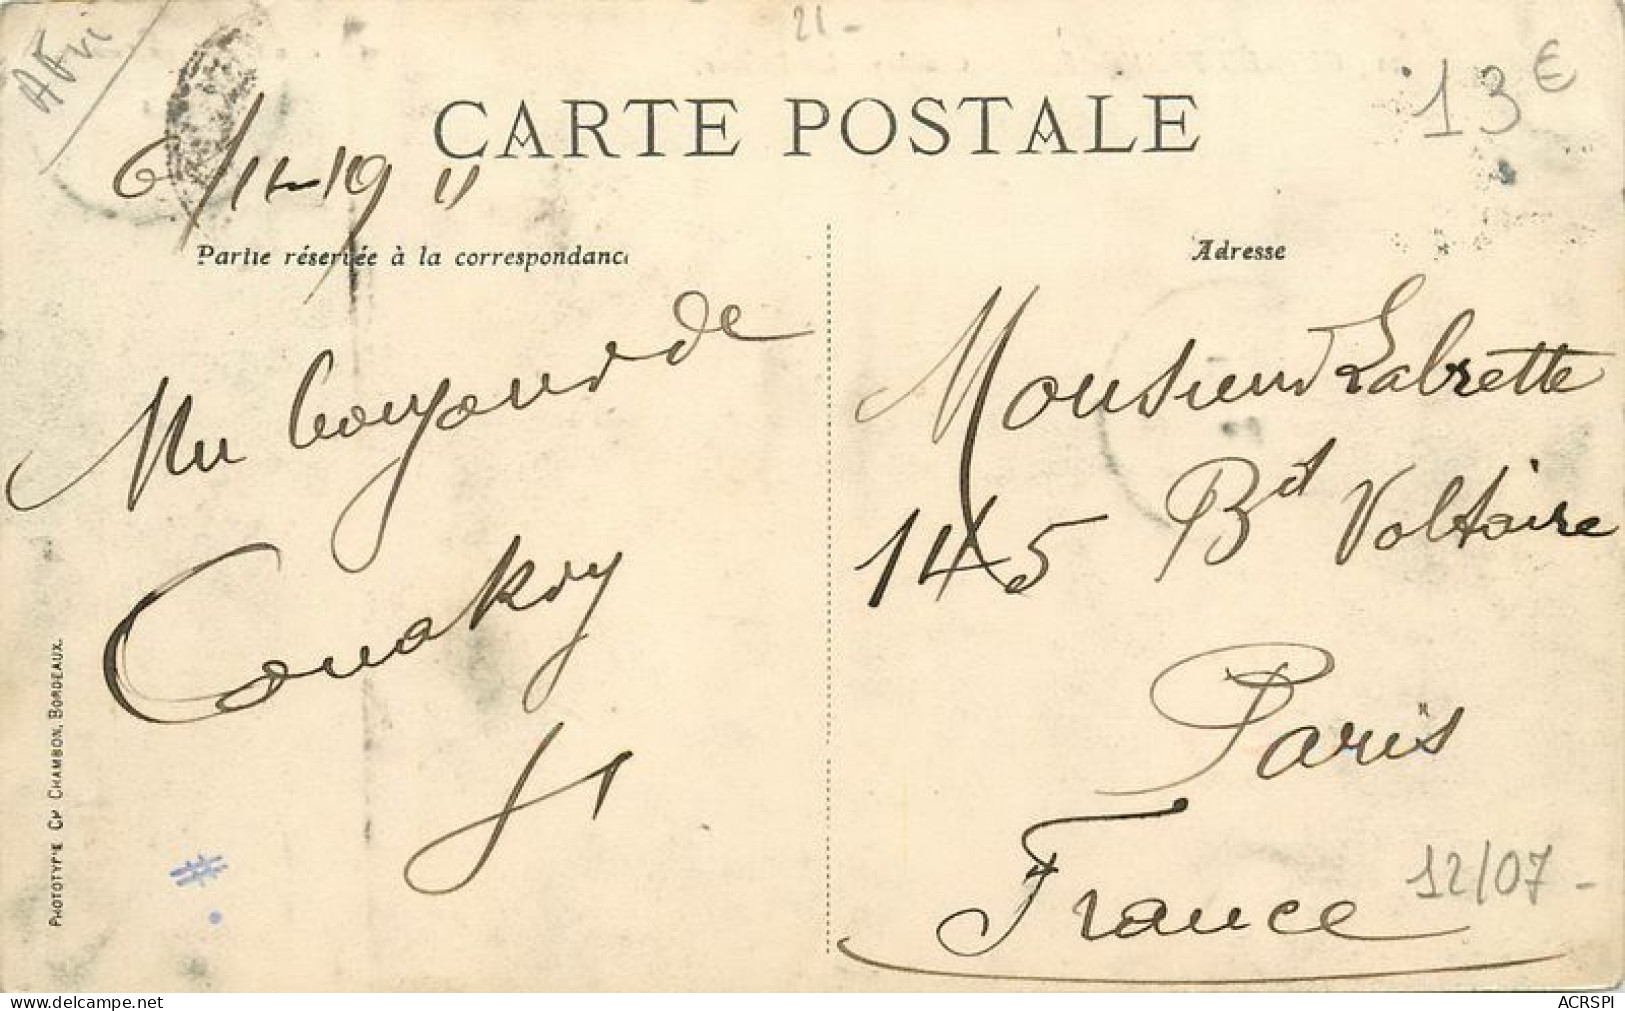 AFri
21-
13 €
CARTE POSTALE
6/11-1911
Partie réservée à la correspondance
Adresse
Un bonjour de
Conakry
Monsieur Labrette
145 Bd Voltaire
Paris
France
12/07-
PHOTOTYPIE CH CHAMBON, BORDEAUX.
www.delcampe.net
ACRSPI